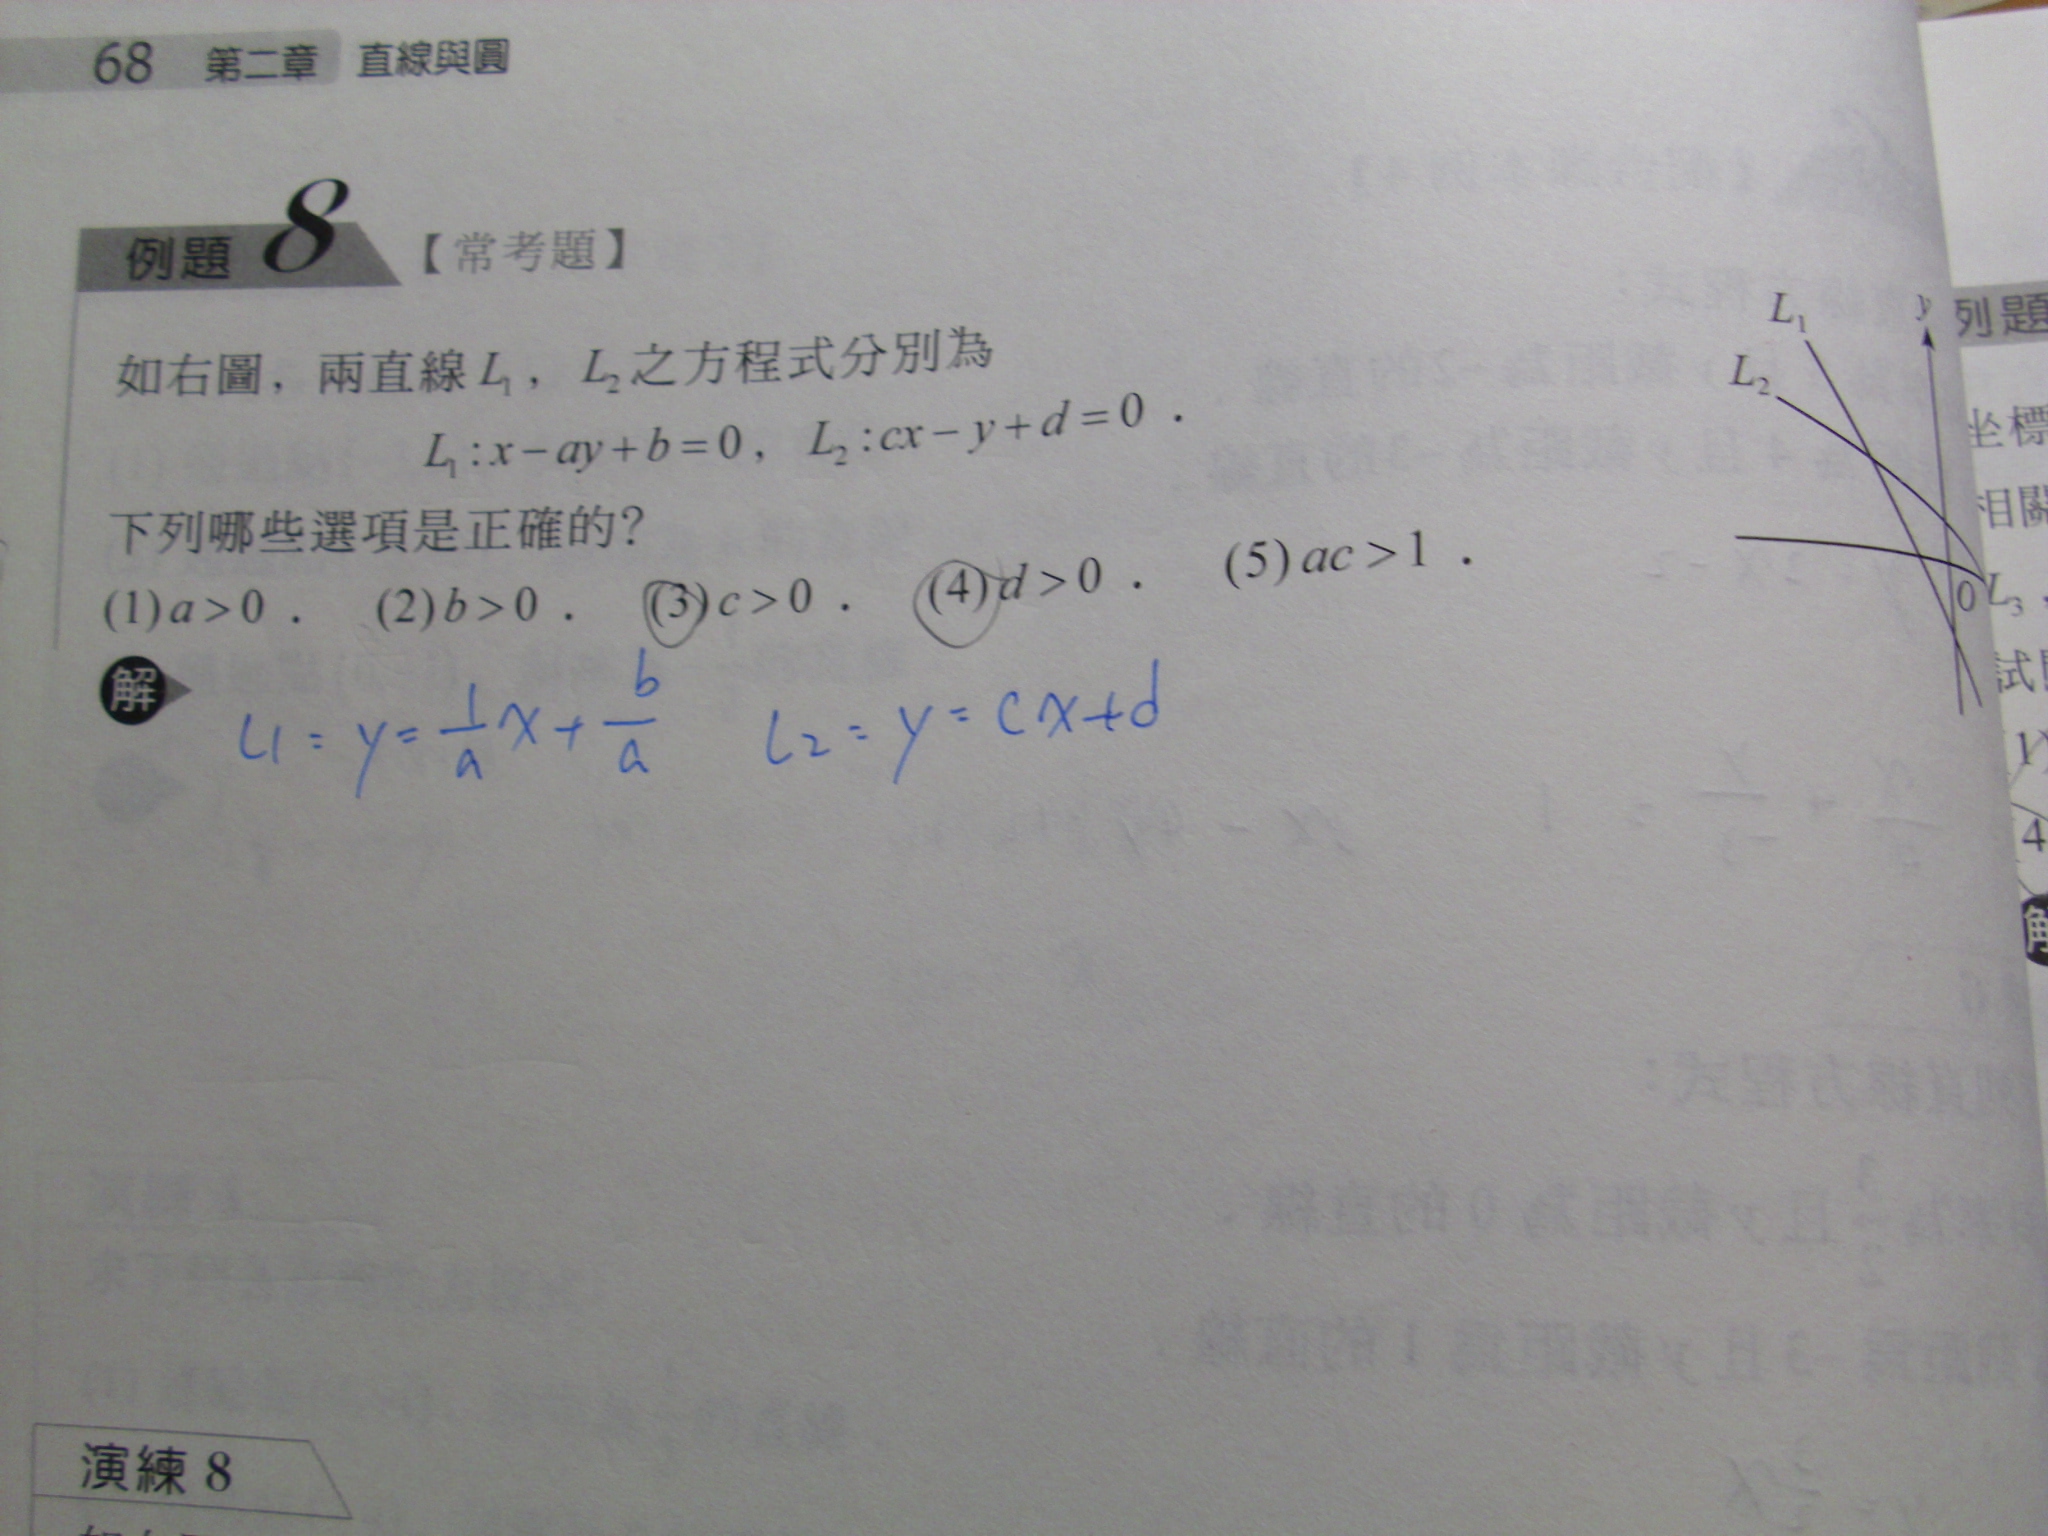 68 第二章 直線與圓
例題 8 【常考題】
如右圖，兩直線 L₁，L₂ 之方程式分別為
L₁:x−ay+b=0，L₂:cx−y+d=0．
下列哪些選項是正確的？
(1)a>0． (2)b>0． (3)c>0． (4)d>0． (5)ac>1．
解
L1 = y = 1/a x + b/a L2 = y = cx+d
L₁
L₂
y
0
演練 8
列題
坐標
相關
L₃，
試
(1)
4
解